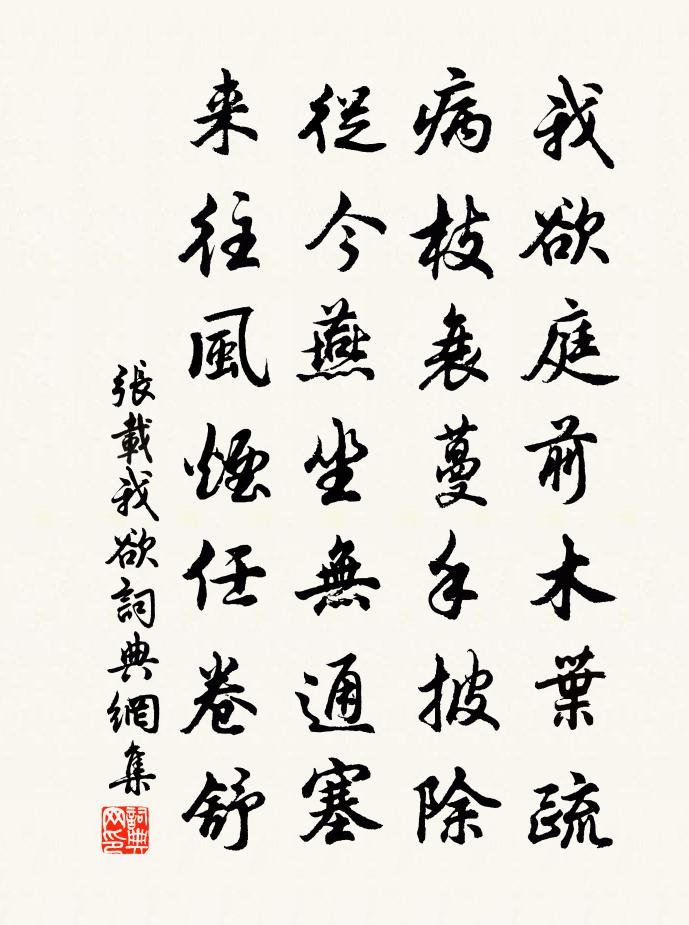 我欲庭前木葉疏
病枝衰蔓手披除
從今燕坐無通塞
来往風煙任卷舒
張載我欲詞典網集
詞典网印